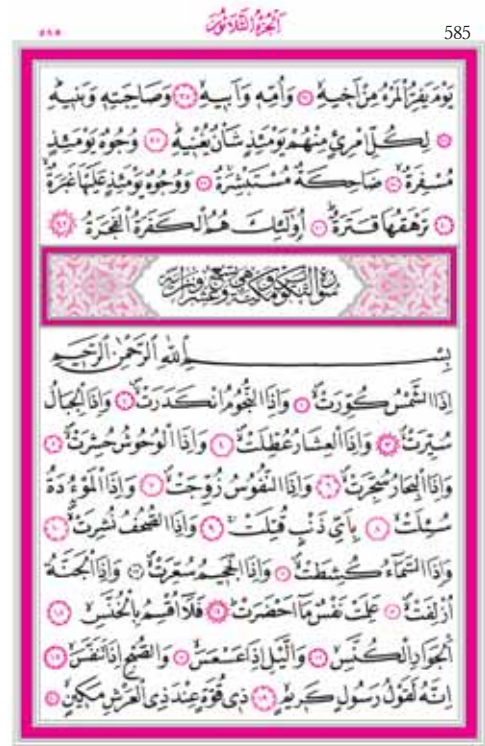 اَلْجُزْءُ الثَّلَاثُونَ
٥٨٥
585
يَوْمَ يَفِرُّ الْمَرْءُ مِنْ اَخٖيهِ ﴿٣٤﴾ وَاُمِّهٖ وَاَبٖيهِ ﴿٣٥﴾ وَصَاحِبَتِهٖ وَبَنٖيهِ
﴿٣٦﴾ لِكُلِّ امْرِئٍ مِنْهُمْ يَوْمَئِذٍ شَأْنٌ يُغْنٖيهِ ﴿٣٧﴾ وُجُوهٌ يَوْمَئِذٍ
مُسْفِرَةٌ ﴿٣٨﴾ ضَاحِكَةٌ مُسْتَبْشِرَةٌ ﴿٣٩﴾ وَوُجُوهٌ يَوْمَئِذٍ عَلَيْهَا غَبَرَةٌ
﴿٤٠﴾ تَرْهَقُهَا قَتَرَةٌ ﴿٤١﴾ اُولٰٓئِكَ هُمُ الْكَفَرَةُ الْفَجَرَةُ ﴿٤٢﴾
سُورَةُ التَّكْوِيرِ مَكِّيَّةٌ وَهِيَ تِسْعٌ وَعِشْرُونَ اٰيَةً
بِسْمِ اللّٰهِ الرَّحْمٰنِ الرَّحٖيمِ
اِذَا الشَّمْسُ كُوِّرَتْ ﴿١﴾ وَاِذَا النُّجُومُ انْكَدَرَتْ ﴿٢﴾ وَاِذَا الْجِبَالُ
سُيِّرَتْ ﴿٣﴾ وَاِذَا الْعِشَارُ عُطِّلَتْ ﴿٤﴾ وَاِذَا الْوُحُوشُ حُشِرَتْ ﴿٥﴾
وَاِذَا الْبِحَارُ سُجِّرَتْ ﴿٦﴾ وَاِذَا النُّفُوسُ زُوِّجَتْ ﴿٧﴾ وَاِذَا الْمَوْءُدَةُ
سُئِلَتْ ﴿٨﴾ بِاَيِّ ذَنْبٍ قُتِلَتْ ﴿٩﴾ وَاِذَا الصُّحُفُ نُشِرَتْ ﴿١٠﴾
وَاِذَا السَّمَٓاءُ كُشِطَتْ ﴿١١﴾ وَاِذَا الْجَحٖيمُ سُعِّرَتْ ﴿١٢﴾ وَاِذَا الْجَنَّةُ
اُزْلِفَتْ ﴿١٣﴾ عَلِمَتْ نَفْسٌ مَٓا اَحْضَرَتْ ﴿١٤﴾ فَلَٓا اُقْسِمُ بِالْخُنَّسِ ﴿١٥﴾
اَلْجَوَارِ الْكُنَّسِ ﴿١٦﴾ وَالَّيْلِ اِذَا عَسْعَسَ ﴿١٧﴾ وَالصُّبْحِ اِذَا تَنَفَّسَ ﴿١٨﴾
اِنَّهُ لَقَوْلُ رَسُولٍ كَرٖيمٍ ﴿١٩﴾ ذٖي قُوَّةٍ عِنْدَ ذِي الْعَرْشِ مَكٖينٍ ﴿٢٠﴾